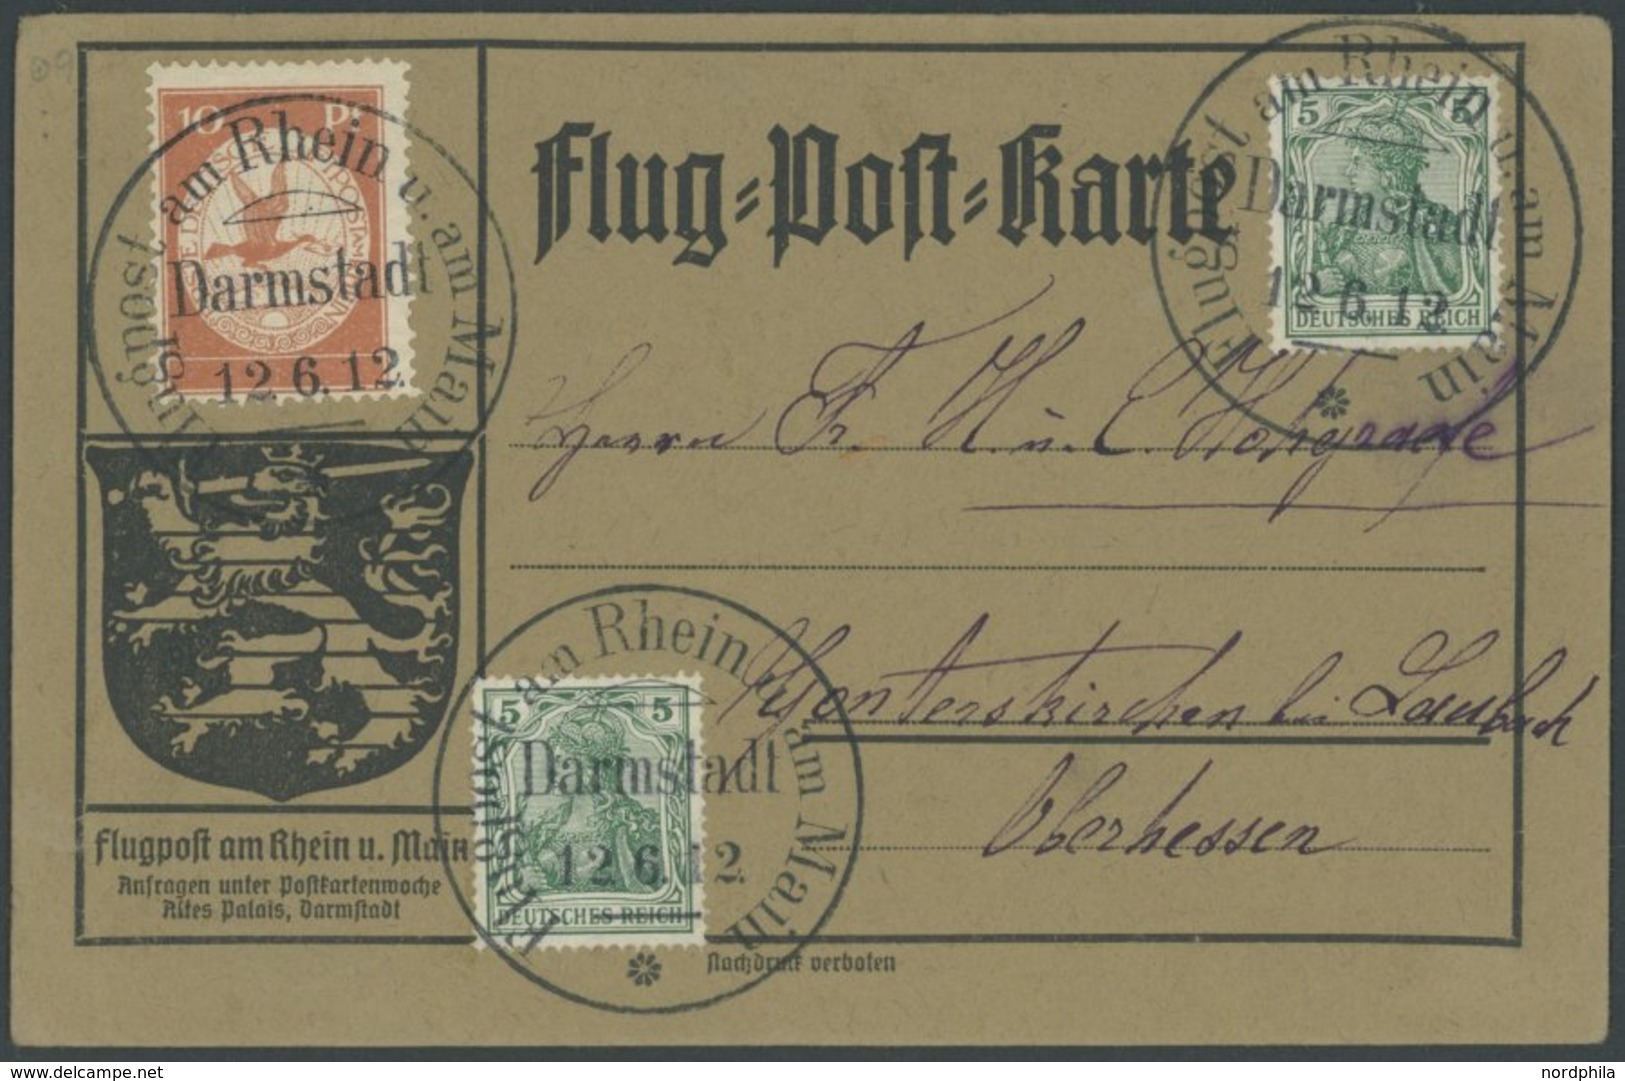 10 Pf
Flugpost am Rhein u. am Main
Darmstadt
12.6.12.
Flug-Post-Karte
5 5
DEUTSCHES REICH
Flugpost am Rhein u. am Main
Darmstadt
12.6.12.
Herrn Fr. H. u. C.
bei Laubach
Oberhessen
5 5
DEUTSCHES REICH
Flugpost am Rhein u. am Main
Darmstadt
12.6.12.
Flugpost am Rhein u. Main
Anfragen unter Postkartenwoche
Altes Palais, Darmstadt
Nachdruck verboten
nordphila